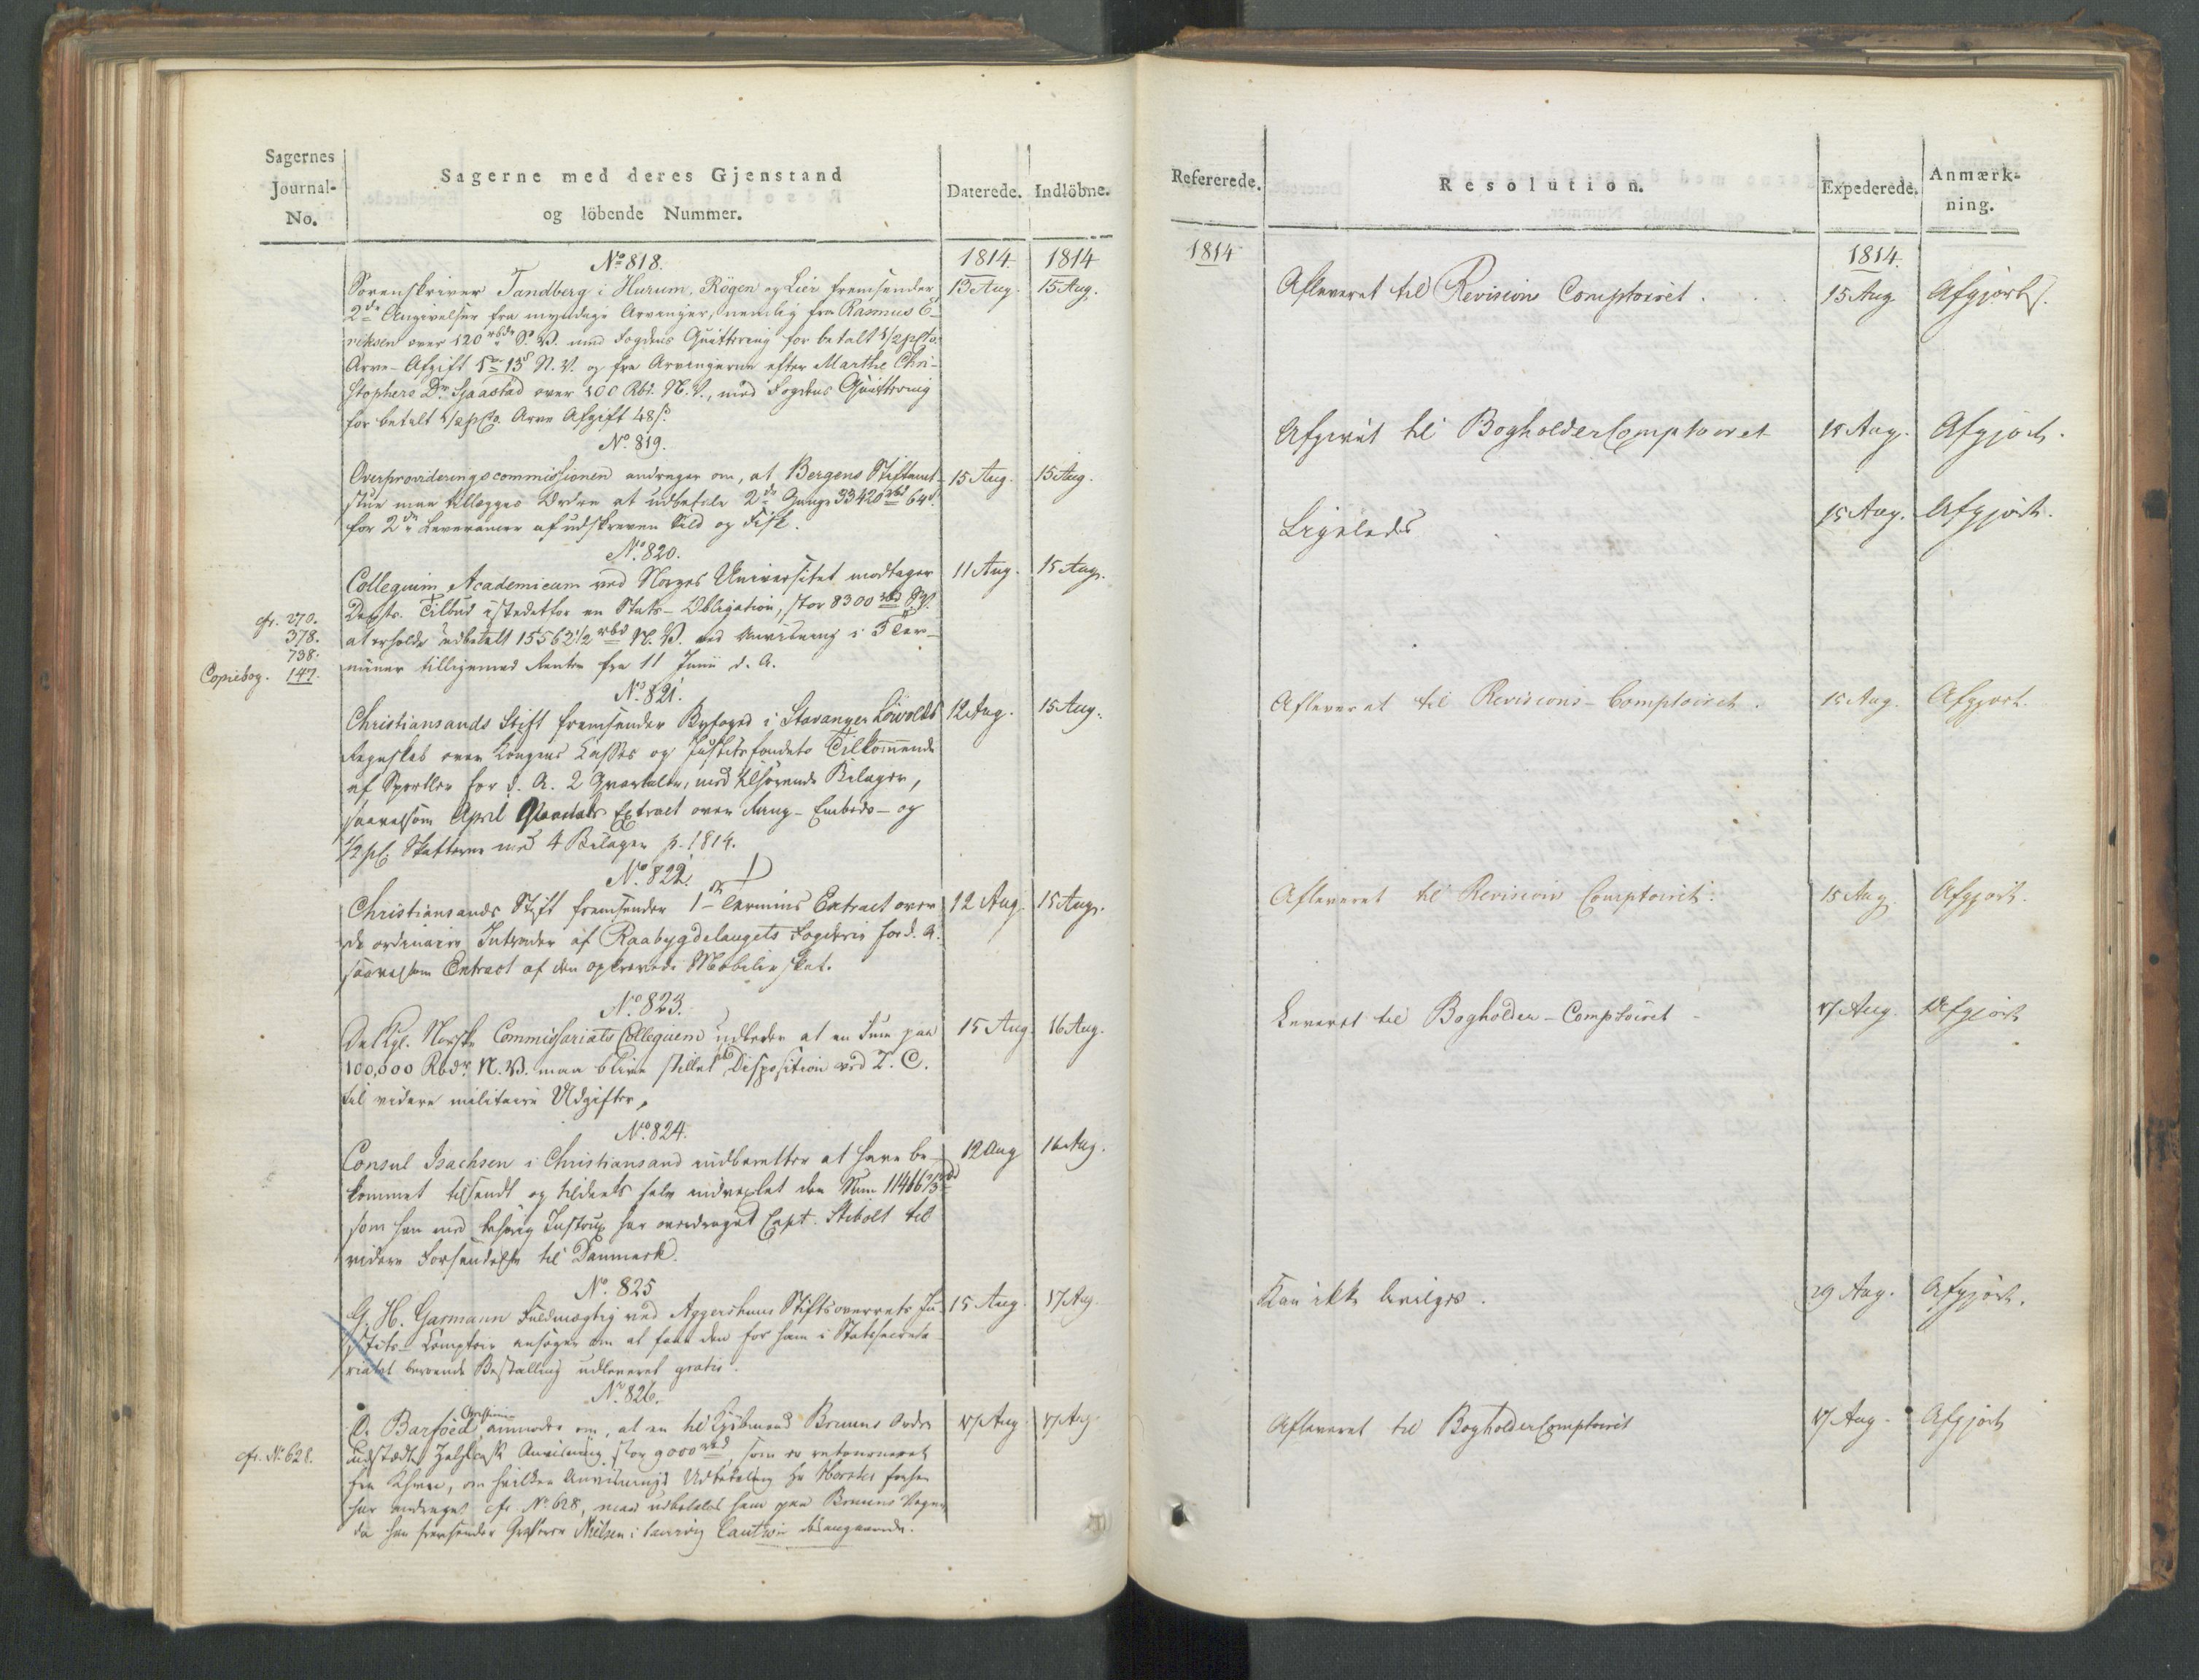 Sagernes
Journal-
No.
Sagerne med deres Gjenstand
og löbende Nummer.
Daterede.
Indlöbne.
1814.
1814
No 818.
Sorenskriver Tandberg i Hurum, Rögen og Lier fremsender
13 Aug.
15 Aug.
2de Angivelser fra myndige Arvinger, nemlig fra Rasmus E-
riksen over 120 rbdr S. V. med Fogdens Quittering for betalt 1/2 pCto
Arve-Afgift 13s N. V. og fra Arvingerne efter Marthe Chri-
stophers Dr Sjaastad over 100 Rbd. N. V., med Fogdens Quittering
for betalt 1/2 pCto. Arve Afgift 48 s.
No. 819.
Overprovideringscommissionen andrager om, at Bergens Stiftamt-
15 Aug.
15 Aug.
stue maa tillægges Ordre at udbetale 2de Gange 33420 rbd 64 s.
for 2de Leverancer af udskreven Sild og Fisk.
No. 820.
Collegium Academicum ved Norges Universitet modtager
11 Aug.
15 Aug.
cfr. 270.
Depts. Tilbud istedetfor en Stats-Obligation, stor 8300 rbd S.V.
378.
at erholde udbetalt 15562 1/2 rbd N. V. ved Anviisning i 3 Ter-
738.
miner tilligemed Renter fra 11 Junii d. A.
Copiebog. 147.
No. 821.
Christiansands Stift fremsender Byfoged i Stavanger Löwolds
12 Aug.
15 Aug.
Regnskab over Kongens Casses og Justitsfondets Tilkommende
af Sportler for d. A. 2 Qvartaler, med tilhørende Bilager,
saavelsom April Qvartals Extract over Rang- Embeds- og
1/2 pC. Skatterne med 4 Bilager p. 1814.
No. 822.
Christiansands Stift fremsender 1ste Termins Extract over
12 Aug.
15 Aug.
de ordinaire Intrader af Raabygdelaugets Fogderie for d. A.
saavelsom Extract af den opkrævede Mobilieskat.
No. 823.
Det Kgl. Norske Commissariats Collegium udbeder at en Sum paa
15 Aug.
16 Aug.
100,000 Rbdr. N. V. maa blive stillet til Disposition ved Z. C.
til videre militaire Udgifter.
No. 824.
Consul Isachsen i Christiansand indberetter at have be-
12 Aug
16 Aug.
kommet tilsendt og tildeels selv indvexlet den Sum
som han med behørig Instrux har overdraget Capt. Stibolt til
videre Forsendelse til Danmark.
No. 825
G. H. Garmann Fuldmægtig ved Aggershuus Stiftsoverrets Ju-
15 Aug.
17 Aug.
stits-Comptoir ansøger om at faae den for ham i Statssecreta-
riatet beroende Bestalling udleveret gratis.
No. 826.
O. Barföed Christiania anmoder om, at en til Kjøbmand Bruuns Ordre
17 Aug
17 Aug.
cfr. No. 628.
udstædt Anviisning, stor 9000 rbd, som er retourneret
fra Khvn, om hvilken Anviisnings Udbetaling Hr
har andraget cfr No 628, maa udbetales ham paa Bruuns Vegne
da han fremsender Nielsen i Laurvig Caution desangaaende.
Refererede.
Resolution.
Expederede.
Anmærk-
ning.
1814
1814.
Afleveret til Revisions Comptoiret.
15 Aug
Afgjort.
Afgivet til BogholderComptoiret
15 Aug.
Afgjort.
Ligeledes
15 Aug.
Afgjort.
Afleveret til Revisions-Comptoiret.
15 Aug.
Afgjort.
Afleveret til Revisions Comptoiret.
15 Aug.
Afgjort.
Leveret til Bogholder-Comptoiret
17 Aug.
Afgjort
Kan ikke bevilges.
29 Aug.
Afgjort.
Afleveret til BogholderComptoiret
17 Aug.
Afgjort